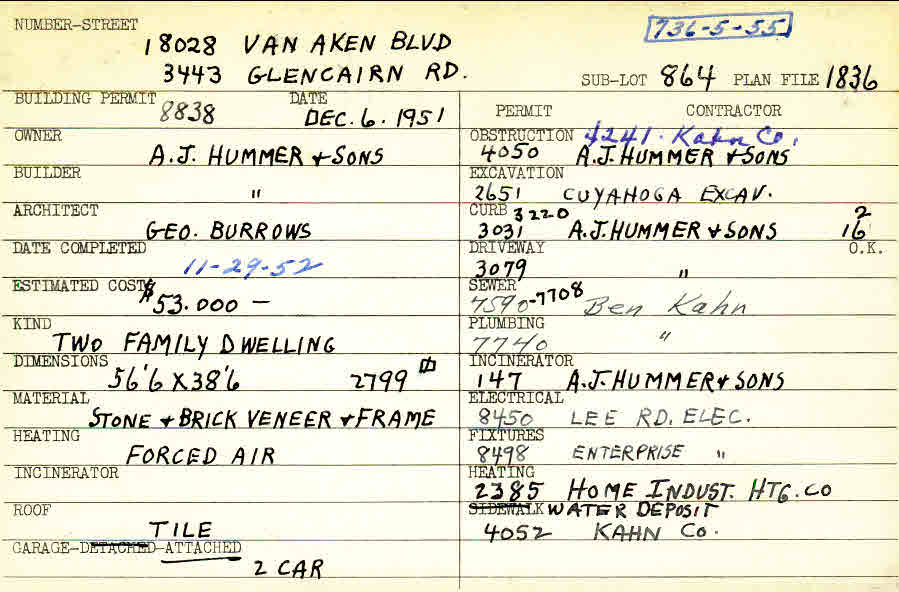 NUMBER-STREET
18028 VAN AKEN BLVD
736-5-55
3443 GLENCAIRN RD.
SUB-LOT 864 PLAN FILE 1836
BUILDING PERMIT 8838 DATE DEC. 6. 1951
OWNER
A.J. HUMMER & SONS
BUILDER
"
ARCHITECT
GEO. BURROWS
DATE COMPLETED
11-29-52
ESTIMATED COST $53.000 —
KIND
TWO FAMILY DWELLING
DIMENSIONS
56'6 X 38'6 2799
MATERIAL
STONE & BRICK VENEER & FRAME
HEATING
FORCED AIR
INCINERATOR
ROOF
TILE
GARAGE-DETACHED-ATTACHED
2 CAR
PERMIT CONTRACTOR
OBSTRUCTION 4241. Kahn Co.
4050 A.J. HUMMER & SONS
EXCAVATION
2651 CUYAHOGA EXCAV.
CURB 3220 2
3031 A.J. HUMMER & SONS 16
DRIVEWAY O.K.
3079 "
SEWER
7590-7708 Ben Kahn
PLUMBING
7740 "
INCINERATOR
147 A.J. HUMMER & SONS
ELECTRICAL
8450 LEE RD. ELEC.
FIXTURES
8498 ENTERPRISE "
HEATING
2385 HOME INDUST. HTG. CO
SIDEWALK WATER DEPOSIT
4052 KAHN Co.